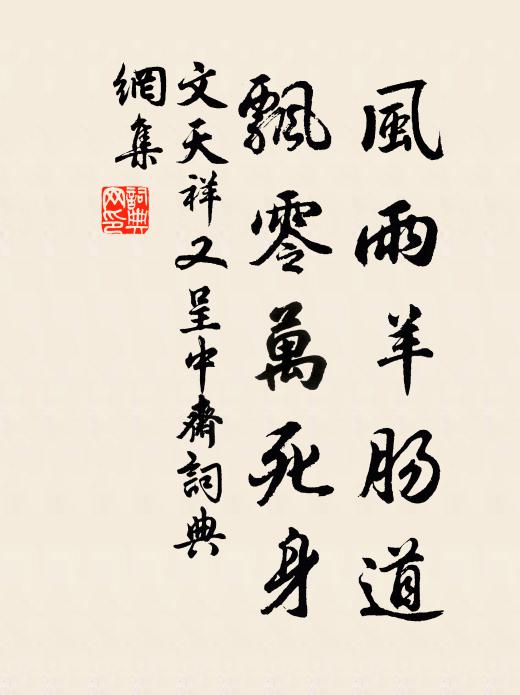 風雨羊肠道
飄零萬死身
文天祥又呈中齋詞典
網集
詞典
网印